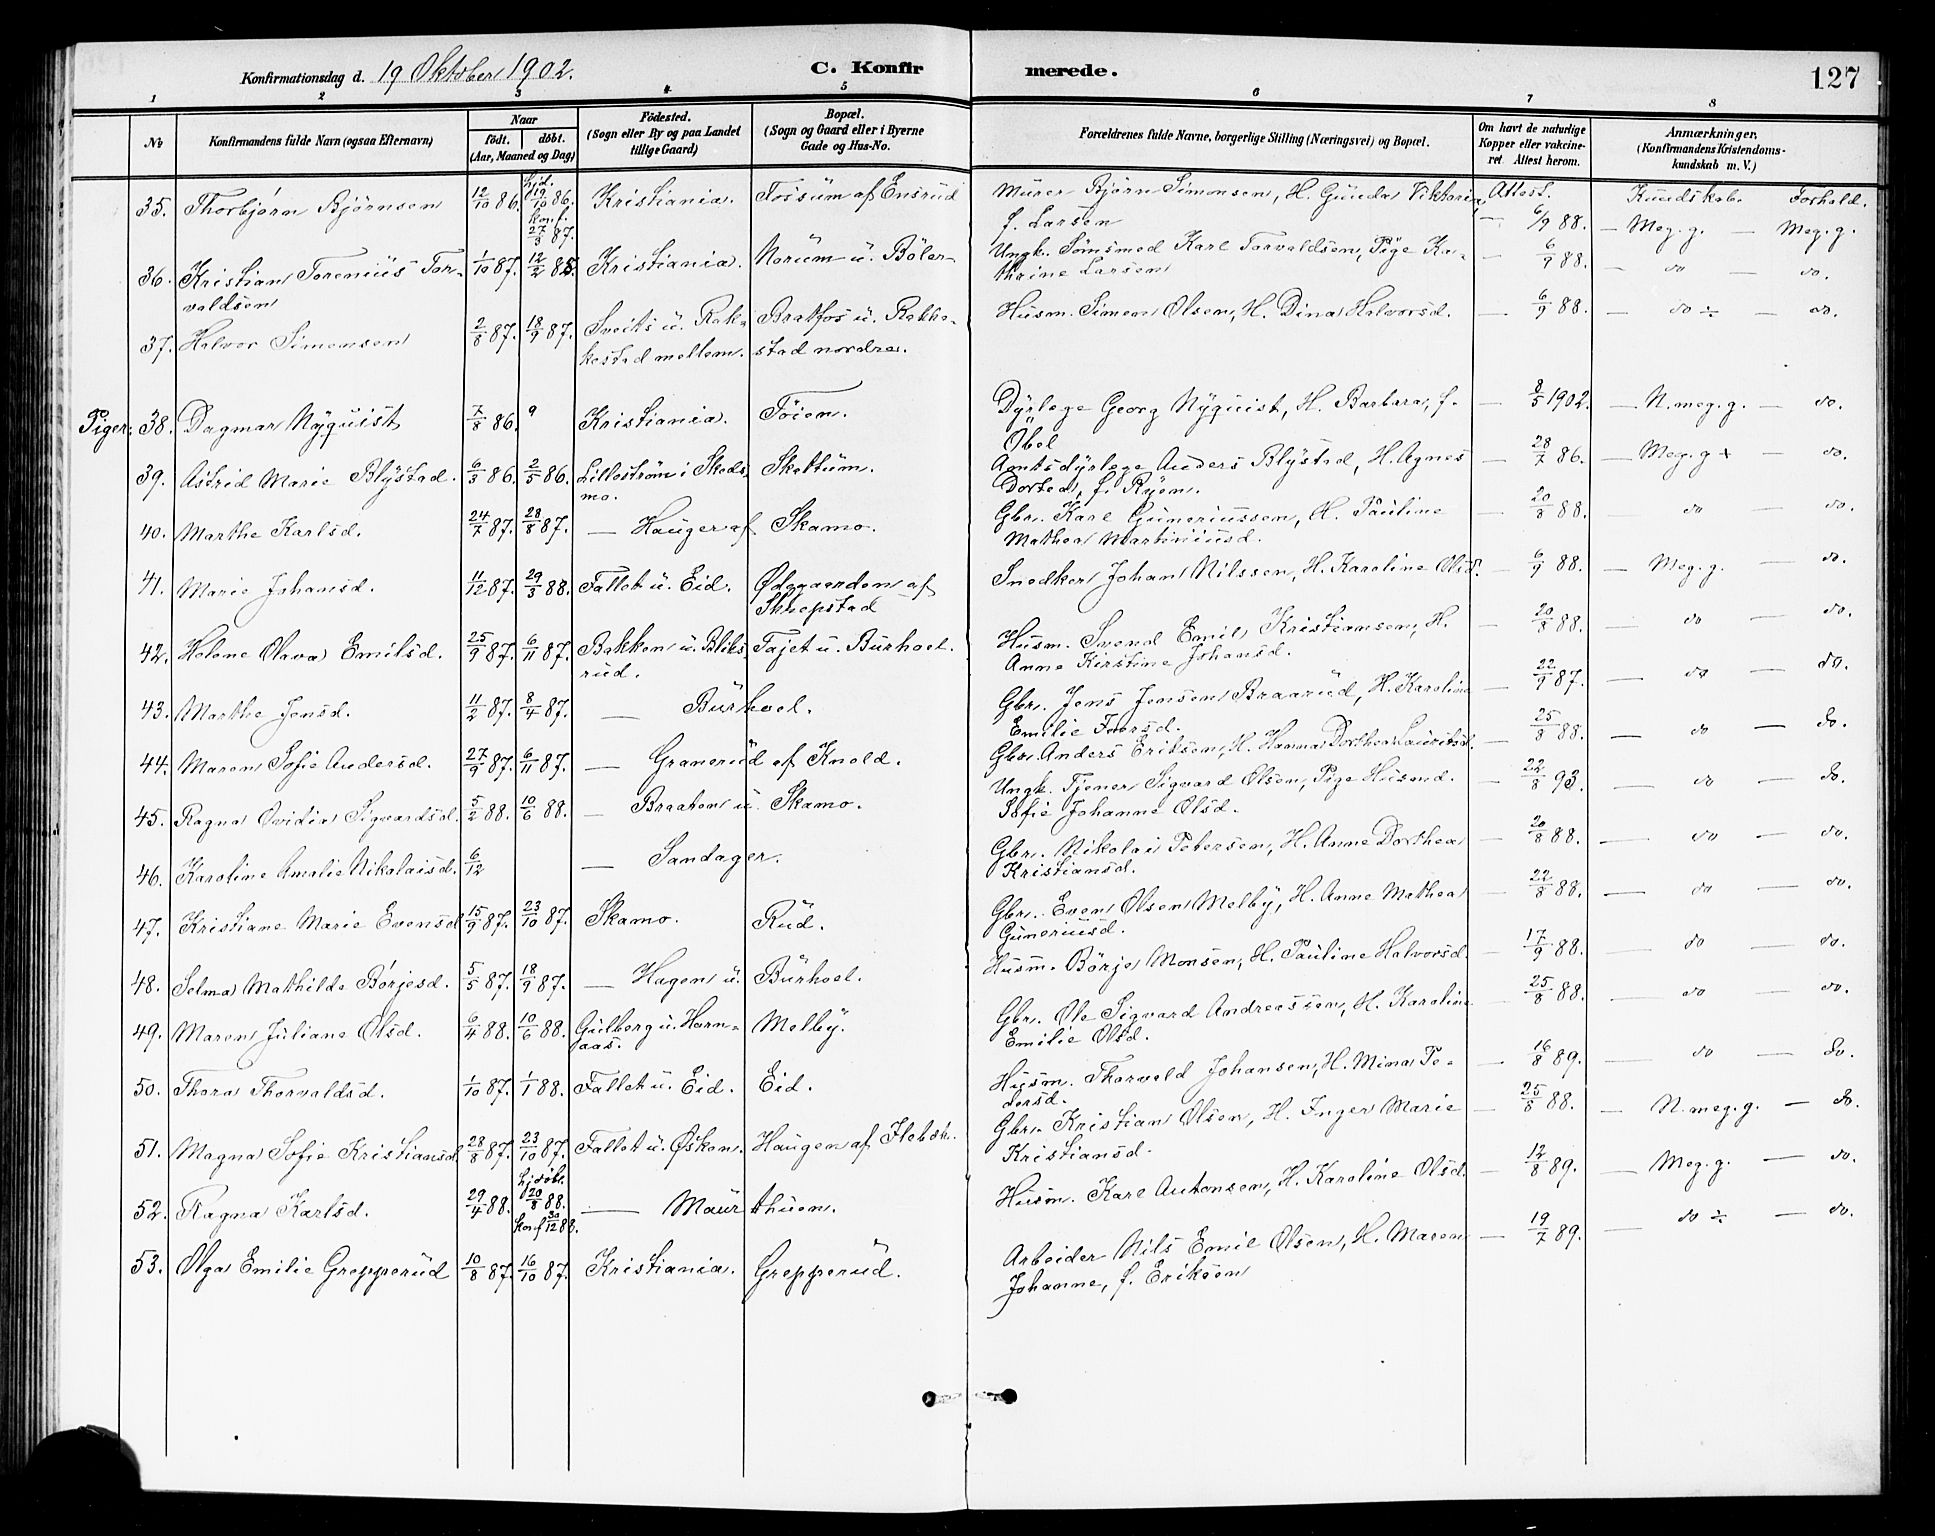 Konfirmationsdag d. 19 Oktober 1902. C. Konfir merede. 127
1 2 3 4 5 6 7 8
No Konfirmandens fulde Navn (ogsaa Efternavn) Naar født. døbt. (Aar, Maaned og Dag) Födested. (Sogn eller By og paa Landet tillige Gaard) Bopæl. (Sogn og Gaard eller i Byerne Gade og Hus-No. Forældrenes fulde Navne, borgerlige Stilling (Næringsvei) og Bopæl. Om havt de naturlige Kopper eller vakcineret Attest herom. Anmærkninger, (Konfirmandens Kristendomskundskab m. V.)
Attest. Kundskab. Forhold.
35. Thorbjørn Bjørnsen 12/10 86. hjd. 19/10 86. konf. 27/3 87. Kristiania. Fossum af Ensrud Murer Bjørn Simonsen, H. Gunda Viktoria
f. Larsen — 6/9 88. — Meg. g. — Meg. g.
36. Kristian Toreniüs Tor-
valdsen 1/10 87. 12/2 88. Kristiania. Norum u. Böler Ungk. Tömsmed Karl Torvaldsen, Pige Ka-
thrine Larsen — 6/9 88. — do — do.
37. Halvor Simensen 2/8 87. 18/9 87. Sveits u. Rak-
kestad mellem. Bratfos u. Rakke-
stad nordre. Husm. Simen Olsen, H. Dina Halvorsd. — 6/9 88. — do ÷ — do.
Piger: 38. Dagmar Nyquist 7/8 86. 9 Kristiania. Töien. Dyrlege Georg Nyquist, H. Barbara, f.
Öbel — 8/5 1902. — N. meg. g. — do.
39. Astrid Marie Blystad. 6/3 86. 2/5 86. Lilleström i Skeds-
mo. Skottum. Amtsdyrlege Anders Blystad, H. Agnes
Dortea, f. Ryen. — 28/7 86. — Meg. g + — do.
40. Marthe Karlsd. 24/7 87. 28/8 87. — Hauger af Skamo. Gbr. Karl Guneriussen, H. Pauline
Mathea Martiniusd. — 20/8 88. — do — do.
41. Marie Johansd. 11/12 87. 29/3 88. Fallet u. Eid. Ødegaarden af
Skrepstad Snedker Johan Nilssen, H. Karoline Olsd. — 6/9 88. — Meg. g. — do.
42. Helene Olava Emilsd. 25/9 87. 6/11 87. Bakken u. Bliks-
rud. Tajet u. Burhoel. Husm. Svend Emil Kristiansen, H.
Anne Kirstine Johansd. — 20/8 88. — do — do.
43. Marthe Jensd. 11/2 87. 8/4 87. — Burhoel. Gbr. Jens Jensen Braarud, H. Karoline
Emilie Thorsd. — 22/9 87. — do — do.
44. Maren Sofie Andersd. 27/9 87. 6/11 87. — Granerud af Knold. Gbr. Anders Eriksen, H. Hanna Dorthea Lauritsd. — 25/8 88. — do — do.
45. Ragna Ovidia Sigvardsd. 5/2 88. 10/6 88. — Braaten u. Skamo. Ungk. Tjener Sigvard Olsen, Pige Husmd.
Sofie Johanne Olsd. — 22/8 93. — do — do.
46. Karoline Amalie Nikolaisd. 6/12 — Sandager. Gbr. Nikolai Petersen, H. Anne Dorthea
Kristiansd. — 20/8 88. — do — do.
47. Kristiane Marie Evensd 15/9 87. 23/10 87. Skamo. Rud. Gbr. Even Olsen Melby, H. Anne Mathea
Guneriusd. — 22/8 88. — do — do.
48. Selma Mathilde Börjesd. 5/5 87. 18/9 87. — Hagen u. Burhoel. Husm. Börje Monsen, H. Pauline Halvorsd. — 17/9 88. — do — do.
49. Maren Juliane Olsd. 6/4 88. 10/6 88. Gulberg u. Horn-
aas. Melby. Gbr. Ole Sigvard Andreassen, H. Karoline
Emilie Olsd. — 25/8 88. — do — do.
50. Thora Thorvaldsd. 1/10 87. 1/1 88. Fallet u. Eid. Eid. Husm. Thorvald Johansen, H. Mina Pe-
dersd. — 16/8 89. — do — do.
51. Magna Sofie Kristiansd 28/8 87. 23/10 87. Fallet u. Øsken. Haugen af Flebæk. Gbr. Kristian Olsen, H. Inger Marie
Kristiansd. — 25/8 88. — N. meg. g. — do.
52. Ragna Karlsd. 29/4 88. hjdöbt. 20/8 88. konf 30/12 88. — Maurthuen. Husm. Karl Antonsen, H. Karoline Olsd. — 12/8 89. — Meg. g. — do.
53. Olga Emilie Grepperud 10/8 87. 16/10 87. Kristiania. Grepperud. Arbeider Nils Emil Olsen, H. Maren
Johanne, f. Eriksen — 19/7 89. — do ÷ — do.